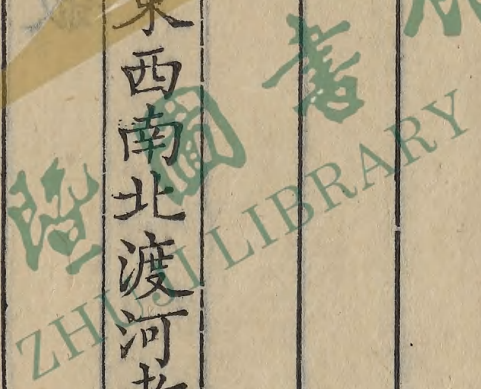 東西南北渡河
ZHUJI LIBRARY